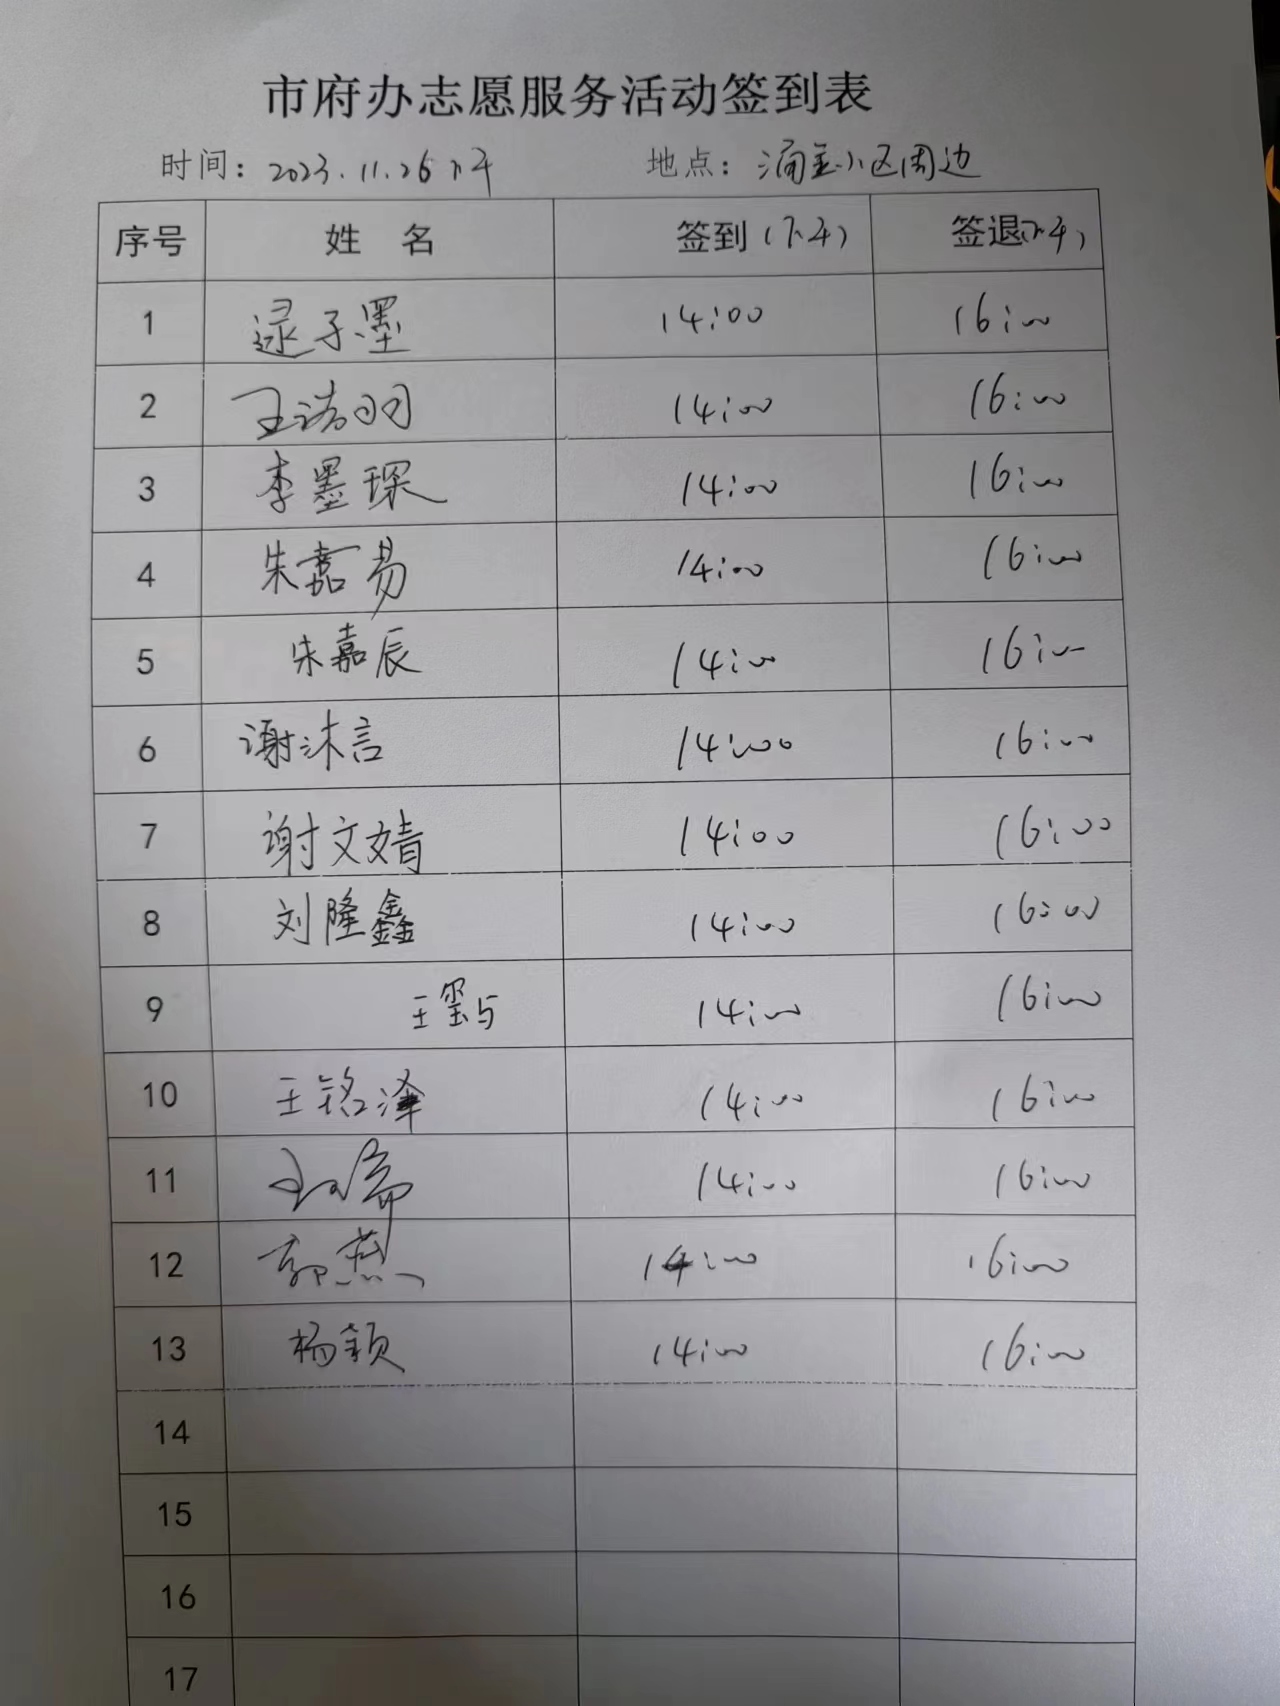 市府办志愿服务活动签到表
时间：2023.11.26下午 地点：涌金小区周边
序号 姓名 签到（下午） 签退（下午）
1 逯子墨 14:00 16:00
2 王诺羽 14:00 16:00
3 李墨琛 14:00 16:00
4 朱嘉易 14:00 16:00
5 朱嘉辰 14:00 16:00
6 谢沐言 14:00 16:00
7 谢文婧 14:00 16:00
8 刘隆鑫 14:00 16:00
9 王玺与 14:00 16:00
10 王铭泽 14:00 16:00
11 14:00 16:00
12 郭燕 14:00 16:00
13 杨颖 14:00 16:00
14
15
16
17